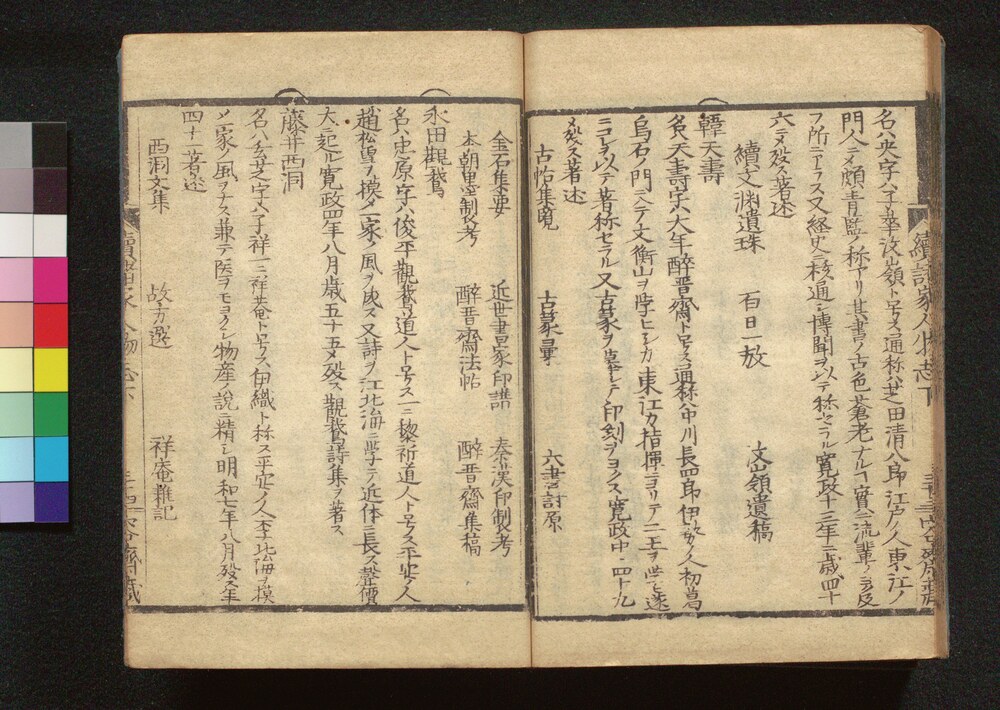 名ハ央字ハ子華汶嶺ト号メ通称ハ芝田清八郎江戸ノ人東江ノ
門人ニメ頗青藍ノ称アリ其書ノ古色蒼老ナルコ實ニ流輩ノ及
フ所ニアラス又経史ニ該通シ博聞ヲ以テ称セラル寛政十二年ニ歳四十
六ニメ殁ス著述
續文淵遺珠 百日一放 文嶺遺稿
韓天壽
名天壽字ハ大年醉晋齋ト号ス通称中川長四郎伊勢ノ人初葛
烏石ノ門ニ入テ文衡山ヲ学ヒシカ東江カ指揮ニヨリテ二王ヲ学
ニコレヲ以テ著称セラル又古篆ヲ善シテ印刻ヲヨクス寛政中四十九
殁ス著述
古帖集覧 古篆彙 六書討原
金石集要 近世書家印譜 秦漢印制考
本朝墨制考 醉晋齋法帖 醉晋齋集稿
永田觀鵞
名ハ忠原字ハ俊平觀鵞道人ト号ス一ニ黎祈道人ト号ス平安ノ人
趙松雪ヲ摸メ一家ノ風ヲ成ス又詩ヲ江北海ニ学テ近体ニ長ス聲價
大ニ起ル寛政四年八月歳五十五メ殁ス觀鵞詩集ヲ著ス
藤井西洞
字ハ子祥一ニ祥菴ト号ス伊織ト称ス平安ノ人李北海ヲ摸
メ一家ノ風ヲナス兼テ医ヲモヨクシ物産ノ説ニ精シ明和七年八月殁ス年
四十二著述
西洞文集 故方選 祥庵雜記